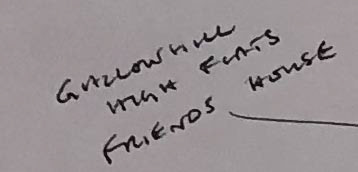 GALLOWHILL
HIGH FLATS
FRIENDS HOUSE